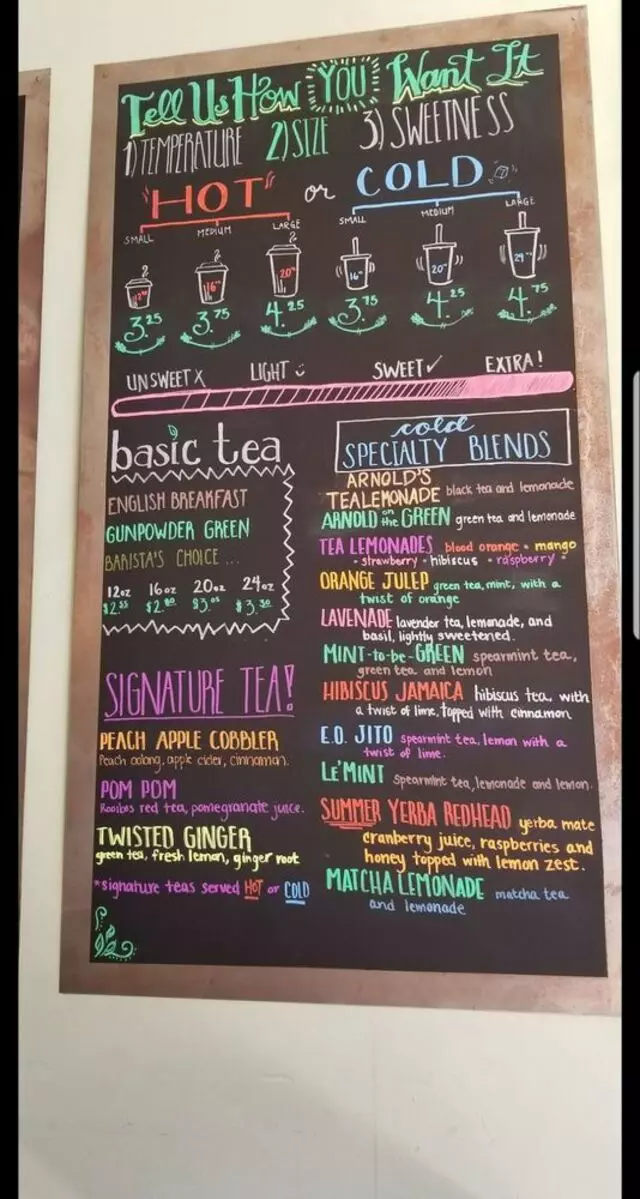 Tell Us How YOU Want It
1) TEMPERATURE 2) SIZE 3) SWEETNESS
"HOT" or COLD
SMALL MEDIUM LARGE SMALL MEDIUM LARGE
12oz 16oz 20oz 16oz 20oz 24oz
3.25 3.75 4.25 3.75 4.25 4.75
UNSWEET X LIGHT SWEET ✓ EXTRA!
basic tea
ENGLISH BREAKFAST
GUNPOWDER GREEN
BARISTA'S CHOICE ...
12oz 16oz 20oz 24oz
$2.80
SIGNATURE TEA!
PEACH APPLE COBBLER
Peach oolong, apple cider, cinnamon.
POM POM
Rooibos red tea, pomegranate juice.
TWISTED GINGER
green tea, fresh lemon, ginger root
*signature teas served HOT or COLD
cold
SPECIALTY BLENDS
ARNOLD'S
TEALEMONADE black tea and lemonade
ARNOLD on the GREEN green tea and lemonade
TEA LEMONADES blood orange • mango
• strawberry • hibiscus • raspberry •
ORANGE JULEP green tea, mint, with a
twist of orange
LAVENADE lavender tea, lemonade, and
basil, lightly sweetened.
MINT-to-be-GREEN spearmint tea,
green tea and lemon
HIBISCUS JAMAICA hibiscus tea, with
a twist of lime, topped with cinnamon
E.O. JITO spearmint tea, lemon with a
twist of lime.
Le'MINT spearmint tea, lemonade and lemon.
SUMMER YERBA REDHEAD yerba mate
cranberry juice, raspberries and
honey topped with lemon zest.
MATCHA LEMONADE matcha tea
and lemonade